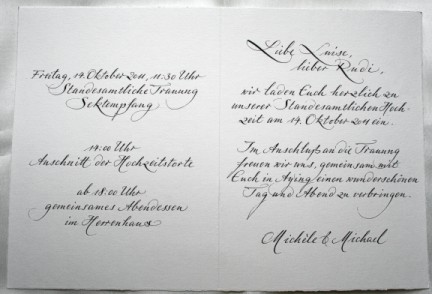 Freitag, 14. Oktober 2011, 11:30 Uhr
Standesamtliche Trauung
Sektempfang
14:00 Uhr
Anschnitt der Hochzeitstorte
ab 18:00 Uhr
gemeinsames Abendessen
im Herrenhaus
Liebe Luise,
lieber Rudi,
wir laden Euch herzlich zu
unserer Standesamtlichen Hoch-
zeit am 14. Oktober 2011 ein.
Im Anschluß an die Trauung
freuen wir uns, gemeinsam mit
Euch in Aying einen wunderschönen
Tag und Abend zu verbringen.
Michèle & Michael